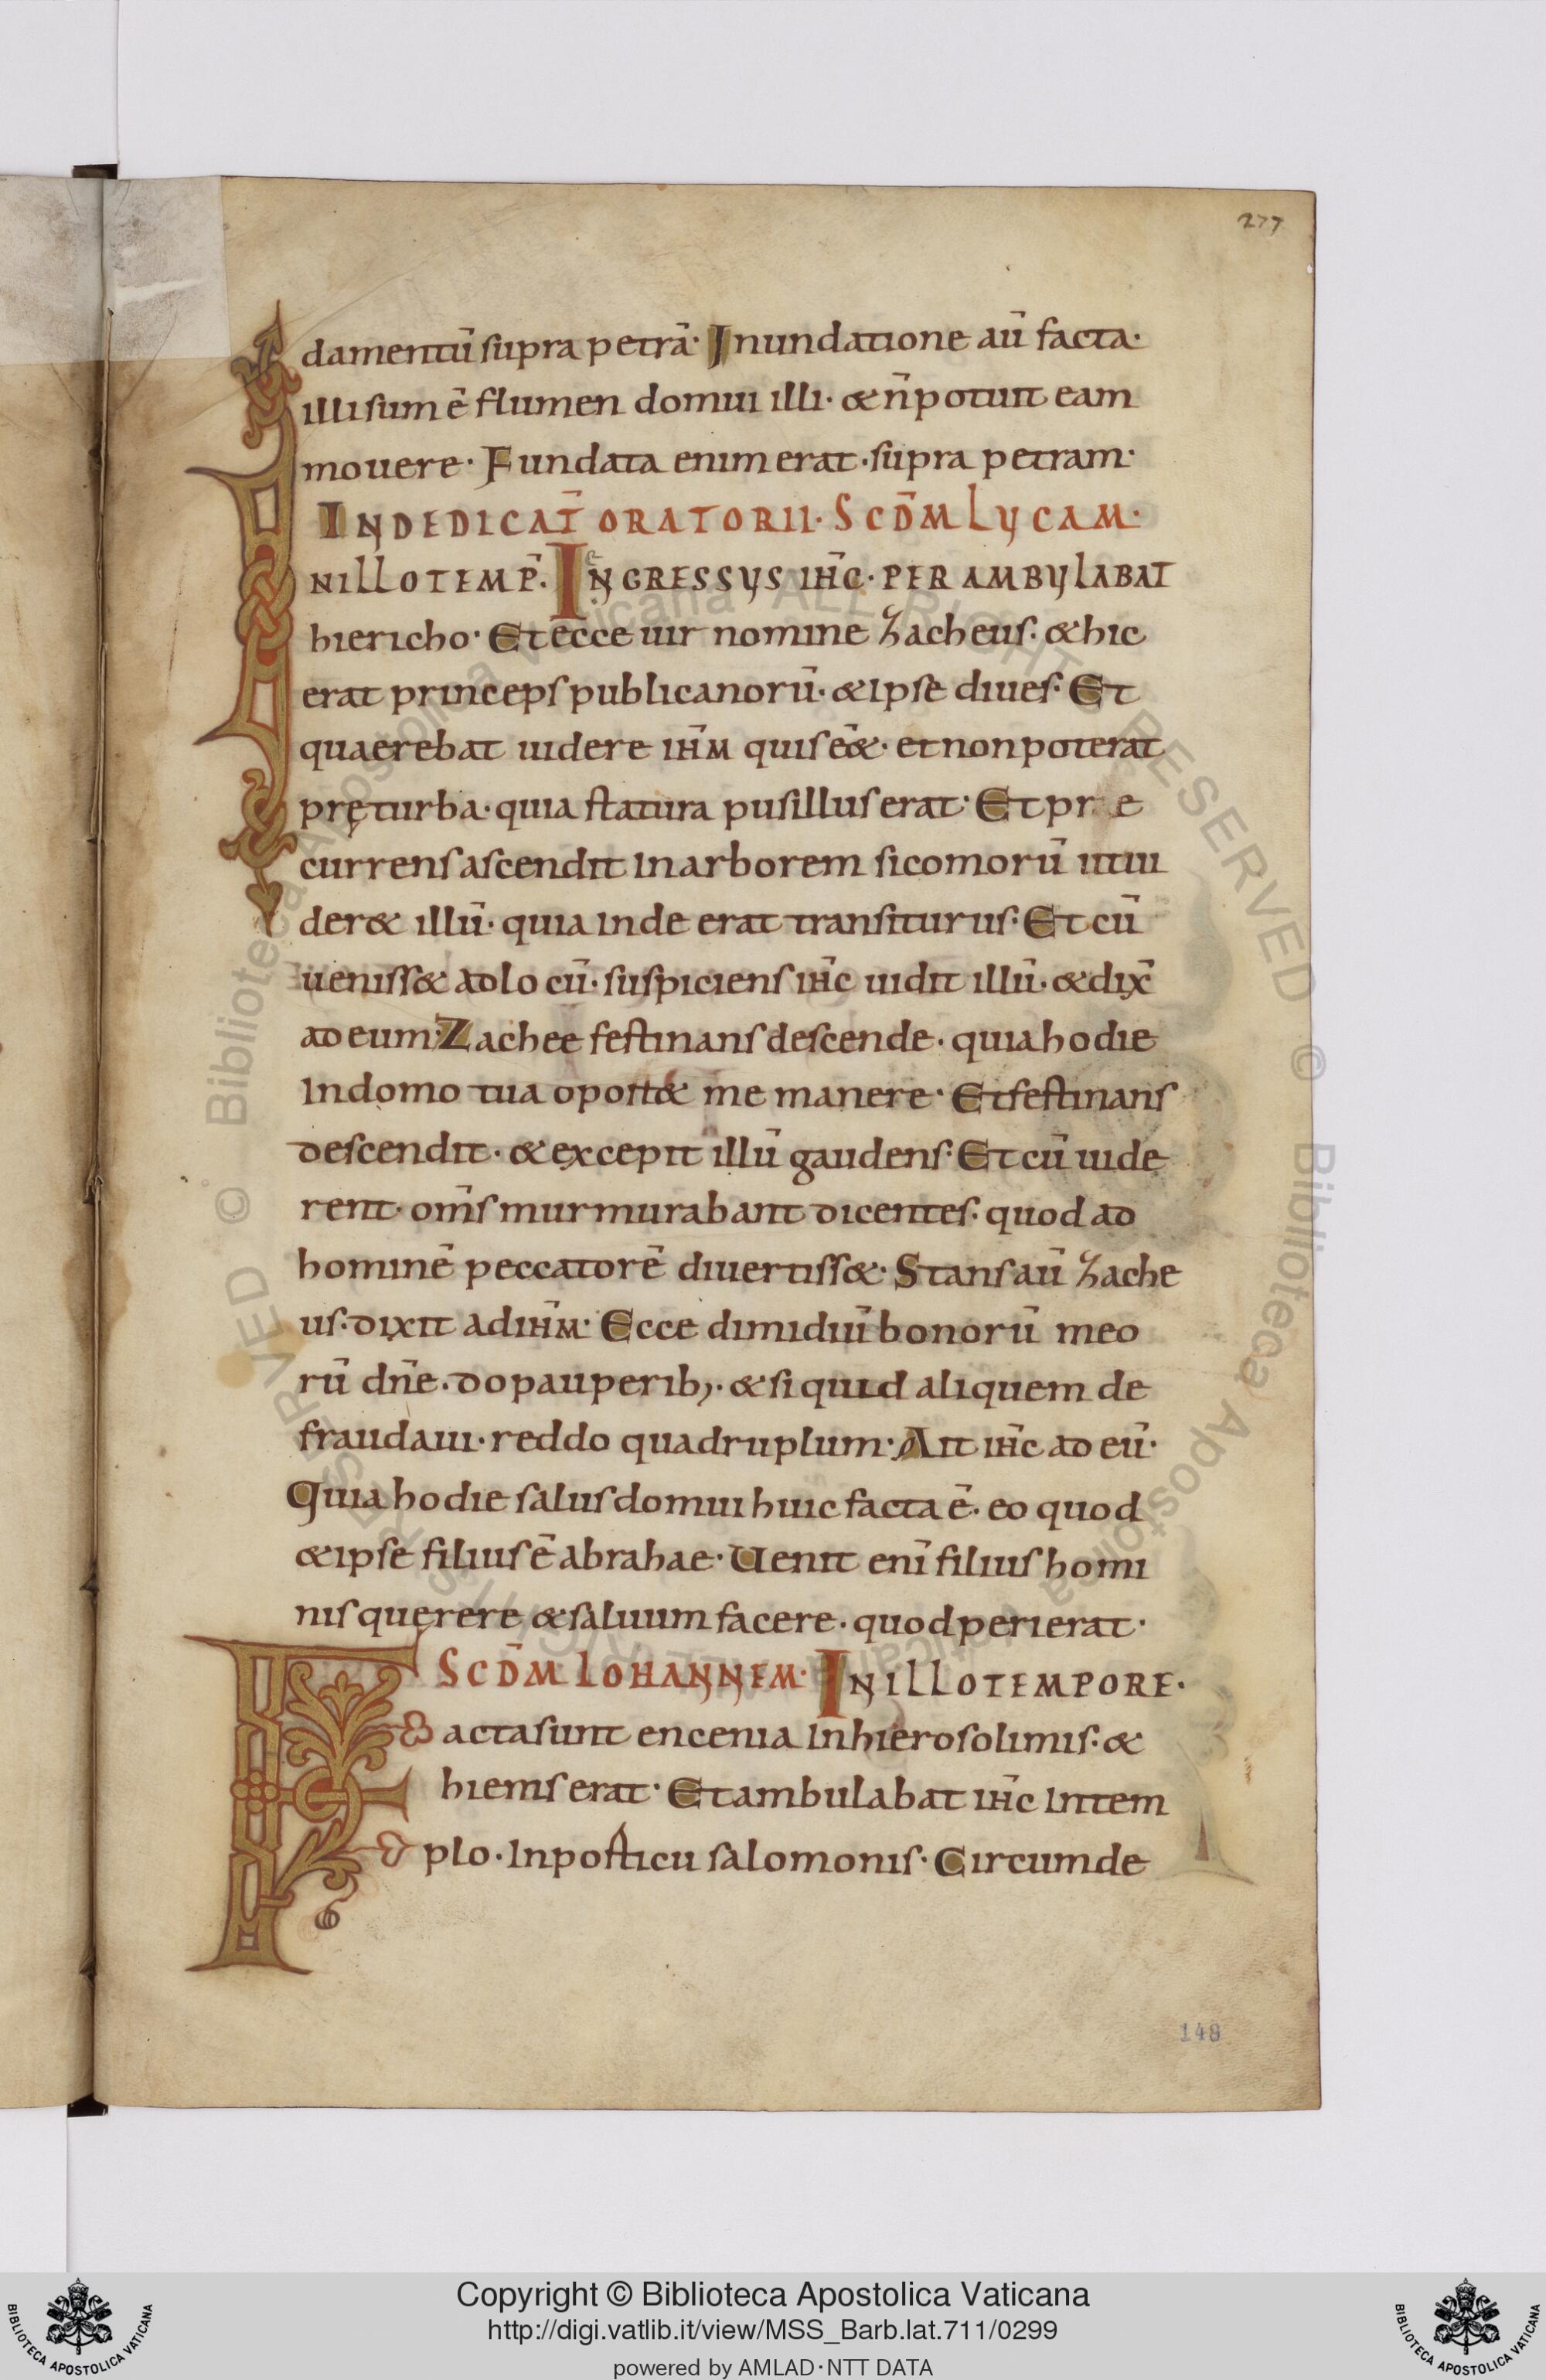 277
damentū supra petrā· Inundatione aū facta·
illisum ē flumen domui illi· & n̄ potuit eam
mouere· Fundata enim erat· supra petram·
IN DEDICAT̄ ORATORII· SCD̄M LUCAM·
IN ILLO TEMP̄. INGRESSUS IHC̄· PERAMBULABAT
hiericho· Et ecce uir nomine Zacheus· & hic
erat princeps publicanorū· & ipse diues· Et
quaerebat uidere IHM̄ quis e&̄· et non poterat
prę turba· quia statura pusillus erat· Et pr e
currens ascendit in arborem sicomorū ut ui
der& illū· quia inde erat transiturus· Et cū
ueniss& ad locū· suspiciens IHC̄ uidit illū· & dix̄
ad eum· Zachee festinans descende· quia hodie
in domo tua oport& me manere· Et festinans
descendit· & excepit illū gaudens· Et cū uide
rent· om̄s murmurabant dicentes· quod ad
hominē peccatorē diuertiss&· Stans aū Zache
us· dixit ad IHM̄· Ecce dimidiū bonorū meo
rū dn̄e· do pauperib;· & si quid aliquem de
fraudaui· reddo quadruplum· Ait IHC̄ ad eū·
Quia hodie salus domui huic facta ē· eo quod
& ipse filius ē abrahae· Uenit enī filius homi
nis querere & saluum facere· quod perierat·
SCD̄M IOHANNEM· IN ILLO TEMPORE·
Facta sunt encenia in hierosolimis· &
hiems erat· Et ambulabat IHC̄ in tem
plo· in posticu salomonis· Circumde
148
Copyright © Biblioteca Apostolica Vaticana
http://digi.vatlib.it/view/MSS_Barb.lat.711/0299
powered by AMLAD·NTT DATA
BIBLIOTECA APOSTOLICA VATICANA
BIBLIOTECA APOSTOLICA VATICANA